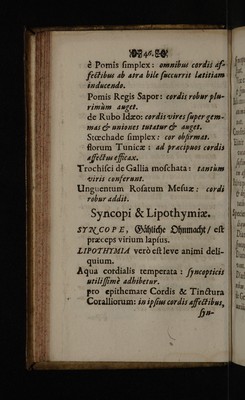 46.
è Pomis simplex: omnibus cordis af-
fectibus ab atra bile succurrit lætitiam
inducendo.
Pomis Regis Sapor: cordis robur plu-
rimùm auget.
de Rubo Idæo: cordis vires super gem-
mas & uniones tutatur & auget.
Stœchade simplex: cor obfirmat.
florum Tunicæ: ad præcipuos cordis
affectus efficax.
Trochisci de Gallia moschata: tantùm
viris conferunt.
Unguentum Rosatum Mesuæ: cordi
robur addit.
Syncopi & Lipothymiæ.
SYNCOPE, Gähliche Ohnmacht / est
præceps virium lapsus.
LIPOTHYMIA verò est leve animi deli-
quium.
Aqua cordialis temperata: syncopticis
utilissimè adhibetur.
pro epithemate Cordis & Tinctura
Coralliorum: in ipsius cordis affectibus,
syn-